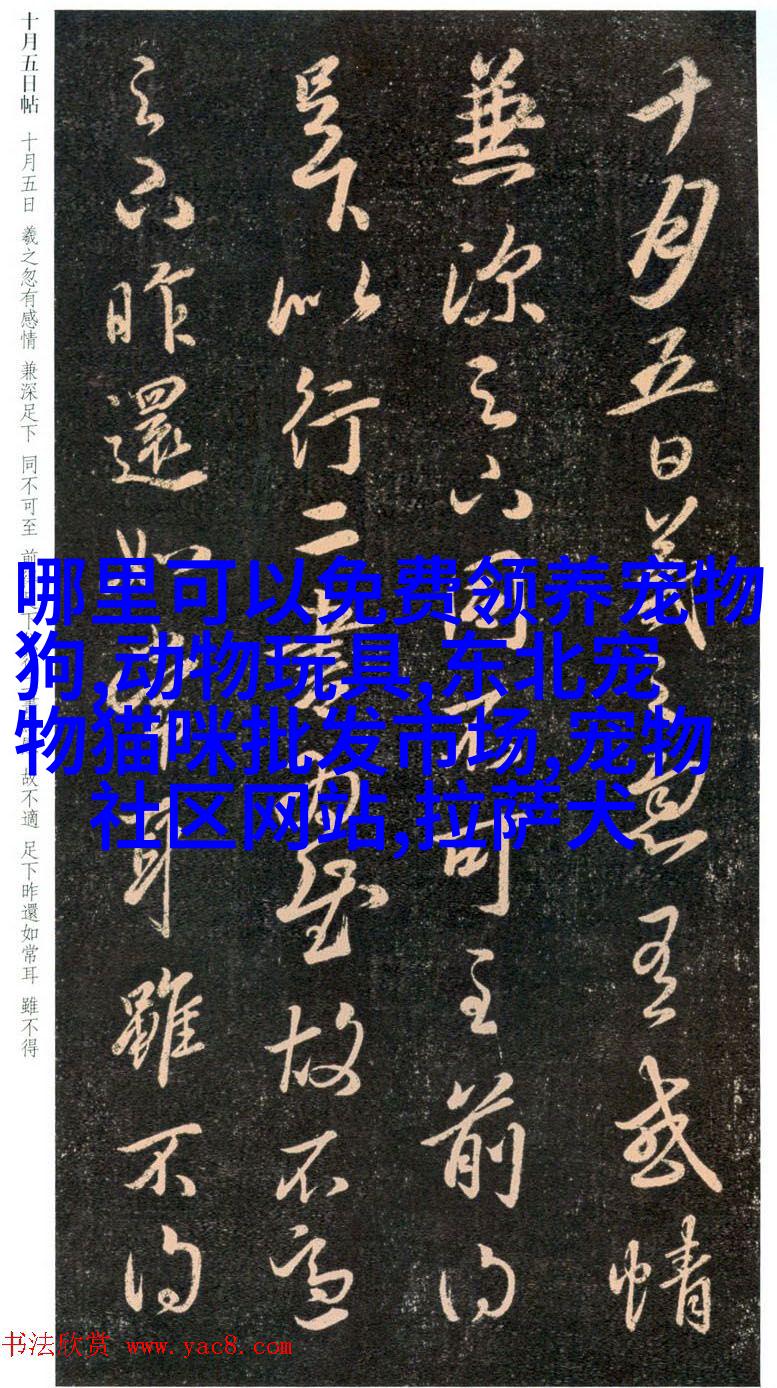 十月五日帖 十月五日 羲之忽有感情 兼深足下 同不可至 前 故不適 足下昨還如常耳 雖不得
十月五日羲之忽有感情
兼深足下同不可至前得
足下以行二書想至故不適
足下昨還如常耳雖不得
哪里可以免费领养宠物
狗,动物玩具,东北宠
物猫咪批发市场,宠物
社区网站,拉萨犬
书法欣赏 www.yac8.com